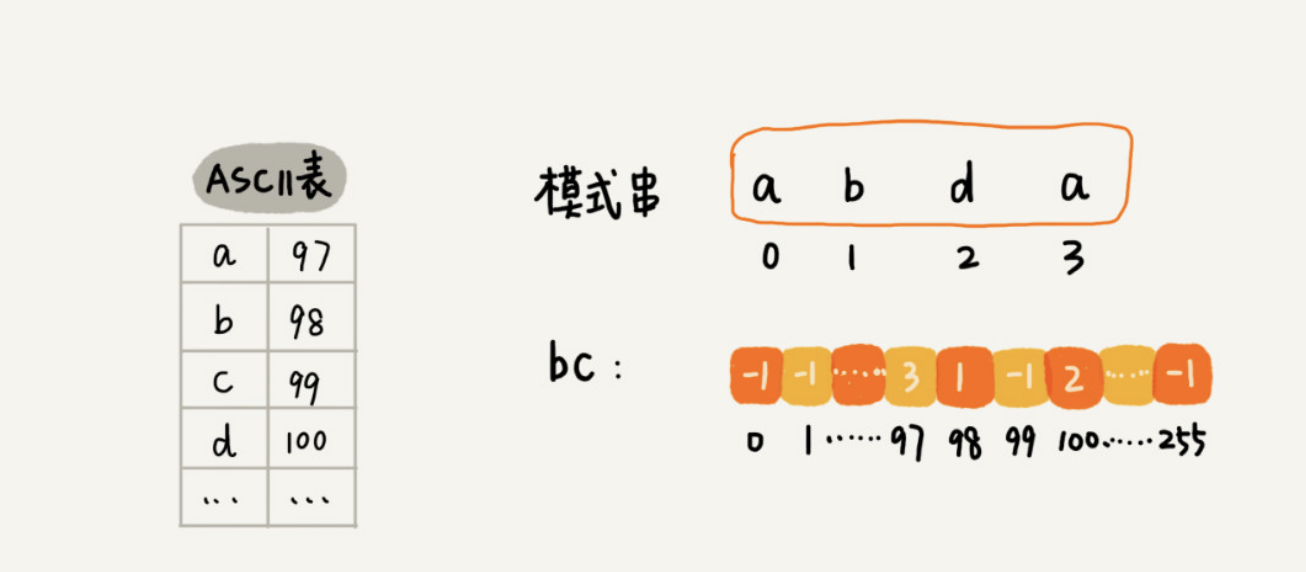 ASCII表
a 97
b 98
c 99
d 100
... ...
模式串 a b d a
0 1 2 3
bc: -1 -1 ...... 3 1 -1 2 ...... -1
0 1 ...... 97 98 99 100 ...... 255